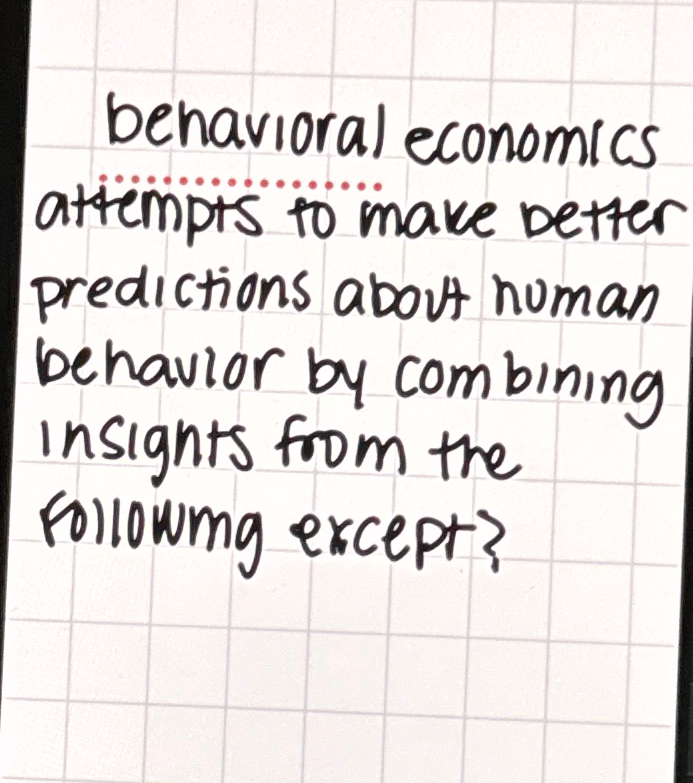 behavioral economics
attempts to make better
predictions about human
behavior by combining
insights from the
following except?